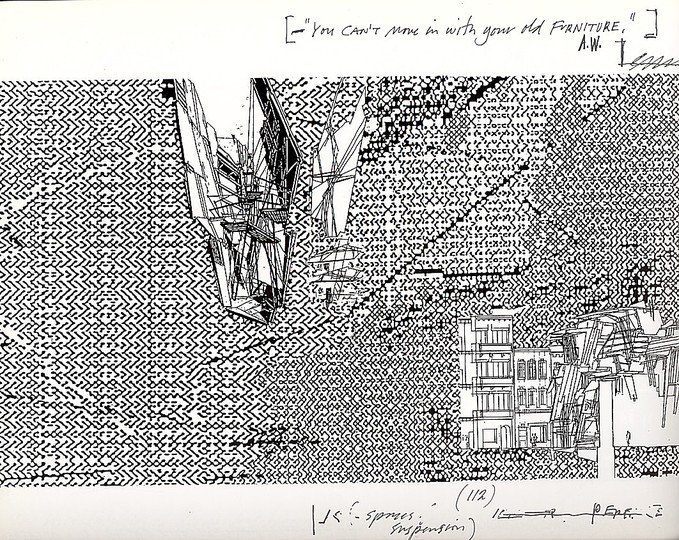 [-"YOU CAN'T move in with your old FURNITURE." ]
A.W.
(112)
(- spaces.
suspension)